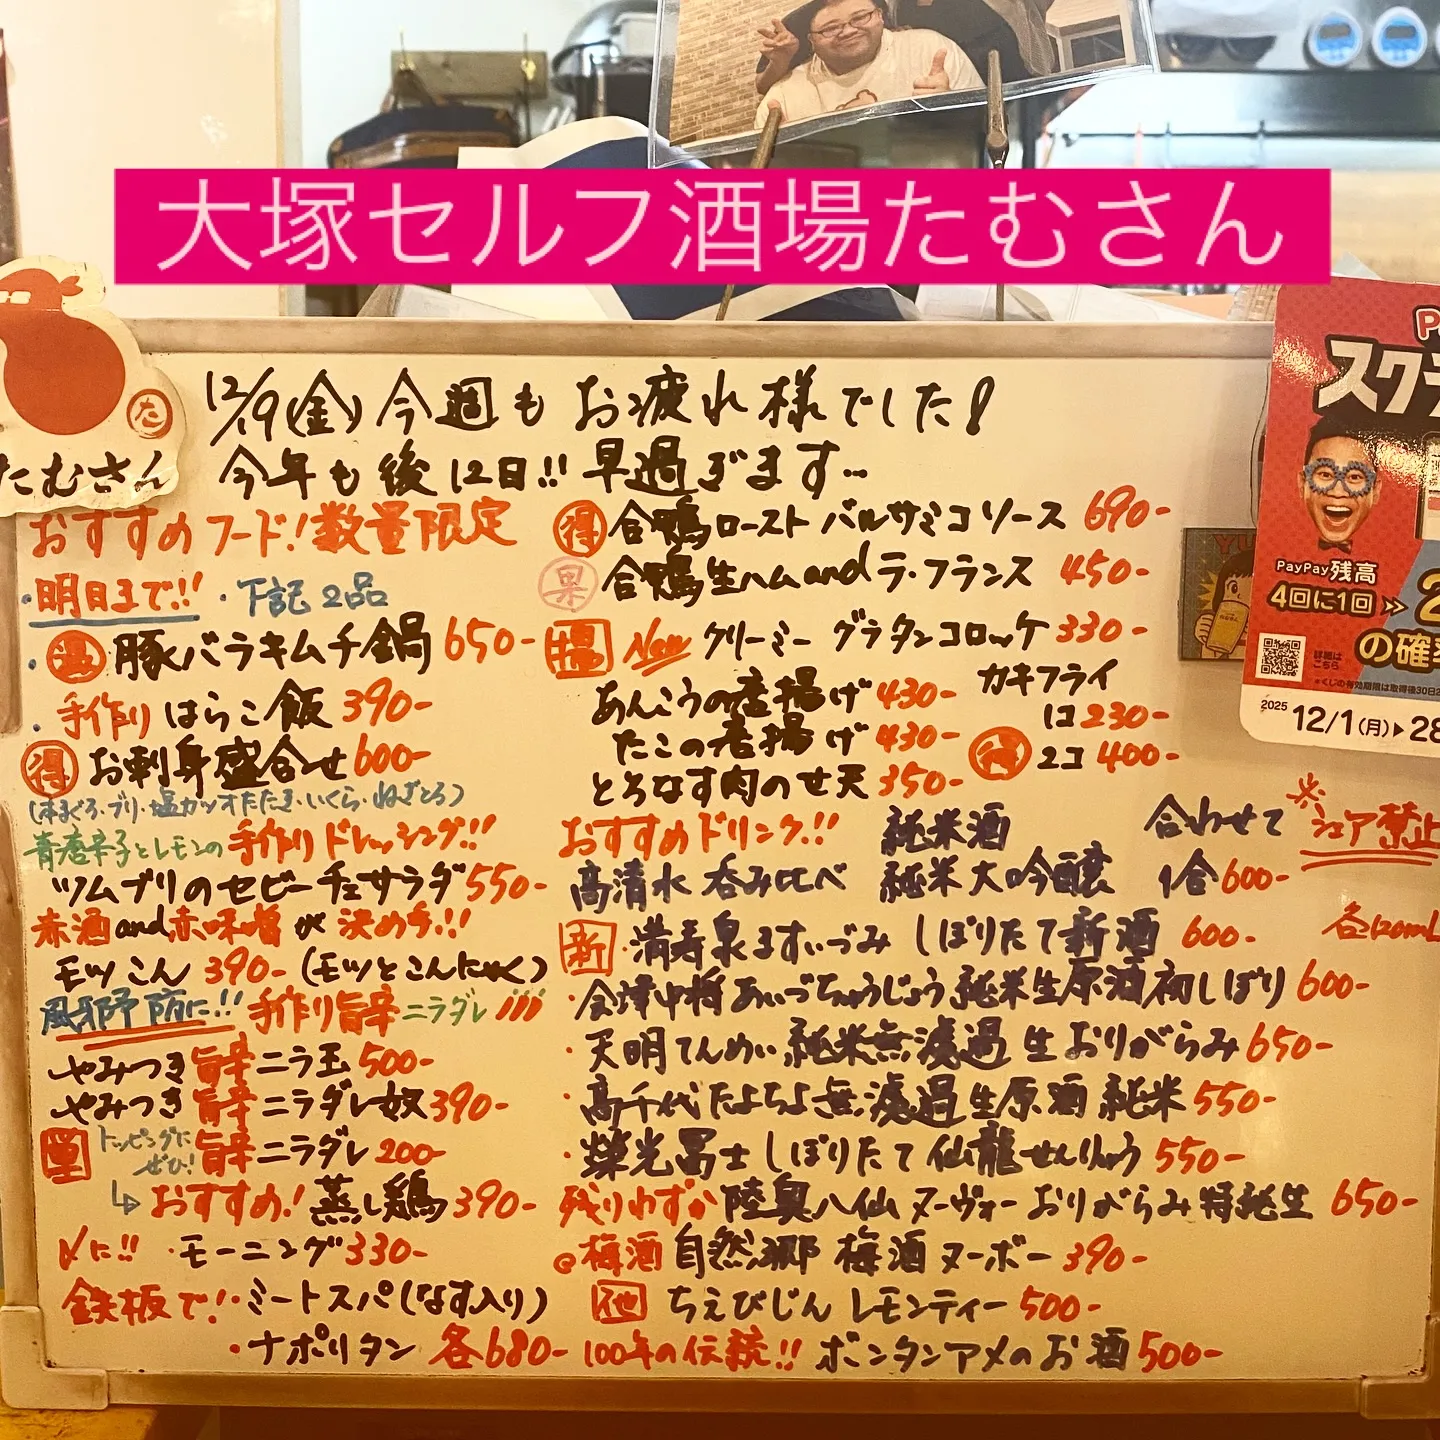 大塚セルフ酒場たむさん
た
たむさん
12/19(金)今週もお疲れ様でした!
今年も後12日!!早過ぎます…
おすすめフード!数量限定
・明日まで!!・下記2品
・得 豚バラキムチ鍋 650-
・手作り はらこ飯 390-
得 お刺身盛合せ 600-
(本まぐろ・ブリ・塩カツオたたき・いくら・ねぎとろ)
青唐辛子とレモンの手作りドレッシング!!
ツムブリのセビーチェサラダ 550-
赤酒and赤味噌が決め手!!
モツこん 390-(モツとこんにゃく)
風邪予防に!! 手作り旨辛ニラダレ!!!
やみつき旨辛ニラ玉 500-
やみつき旨辛ニラダレ奴 390-
トッピングにぜひ! 旨辛ニラダレ 200-
↳おすすめ!蒸し鶏 390-
〆に!!・モーニング 330-
鉄板で!・ミートスパ(なす入り)
・ナポリタン 各680-
得 合鴨ロースト バルサミコソース 690-
果 合鴨生ハムandラ・フランス 450-
揚 New クリーミーグラタンコロッケ 330-
あんこうの唐揚げ 430-
たこの唐揚げ 430-
とろなす肉のせ天 350-
カキフライ
1コ 230-
得 2コ 400-
おすすめドリンク!! 純米酒 合わせて
高清水 呑み比べ 純米大吟醸 1合 600-
※シェア禁止
各120mL
新・満寿泉ますいづみ しぼりたて新酒 600-
・会津中将あいづちゅうじょう純米生原酒初しぼり 600-
・天明てんめい純米無濾過生おりがらみ 650-
・高千代たかちよ無濾過生原酒純米 550-
・榮光冨士しぼりたて仙龍せんりゅう 550-
残りわずか陸奥八仙ヌーヴォーおりがらみ特純生 650-
@梅酒 自然郷 梅酒ヌーボー 390-
他 ちえびじんレモンティー 500-
100年の伝統!!ボンタンアメのお酒 500-
スクラ
PayPay残高
4回に1回
の確率
詳細はこちら
2025 12/1(月)▶28